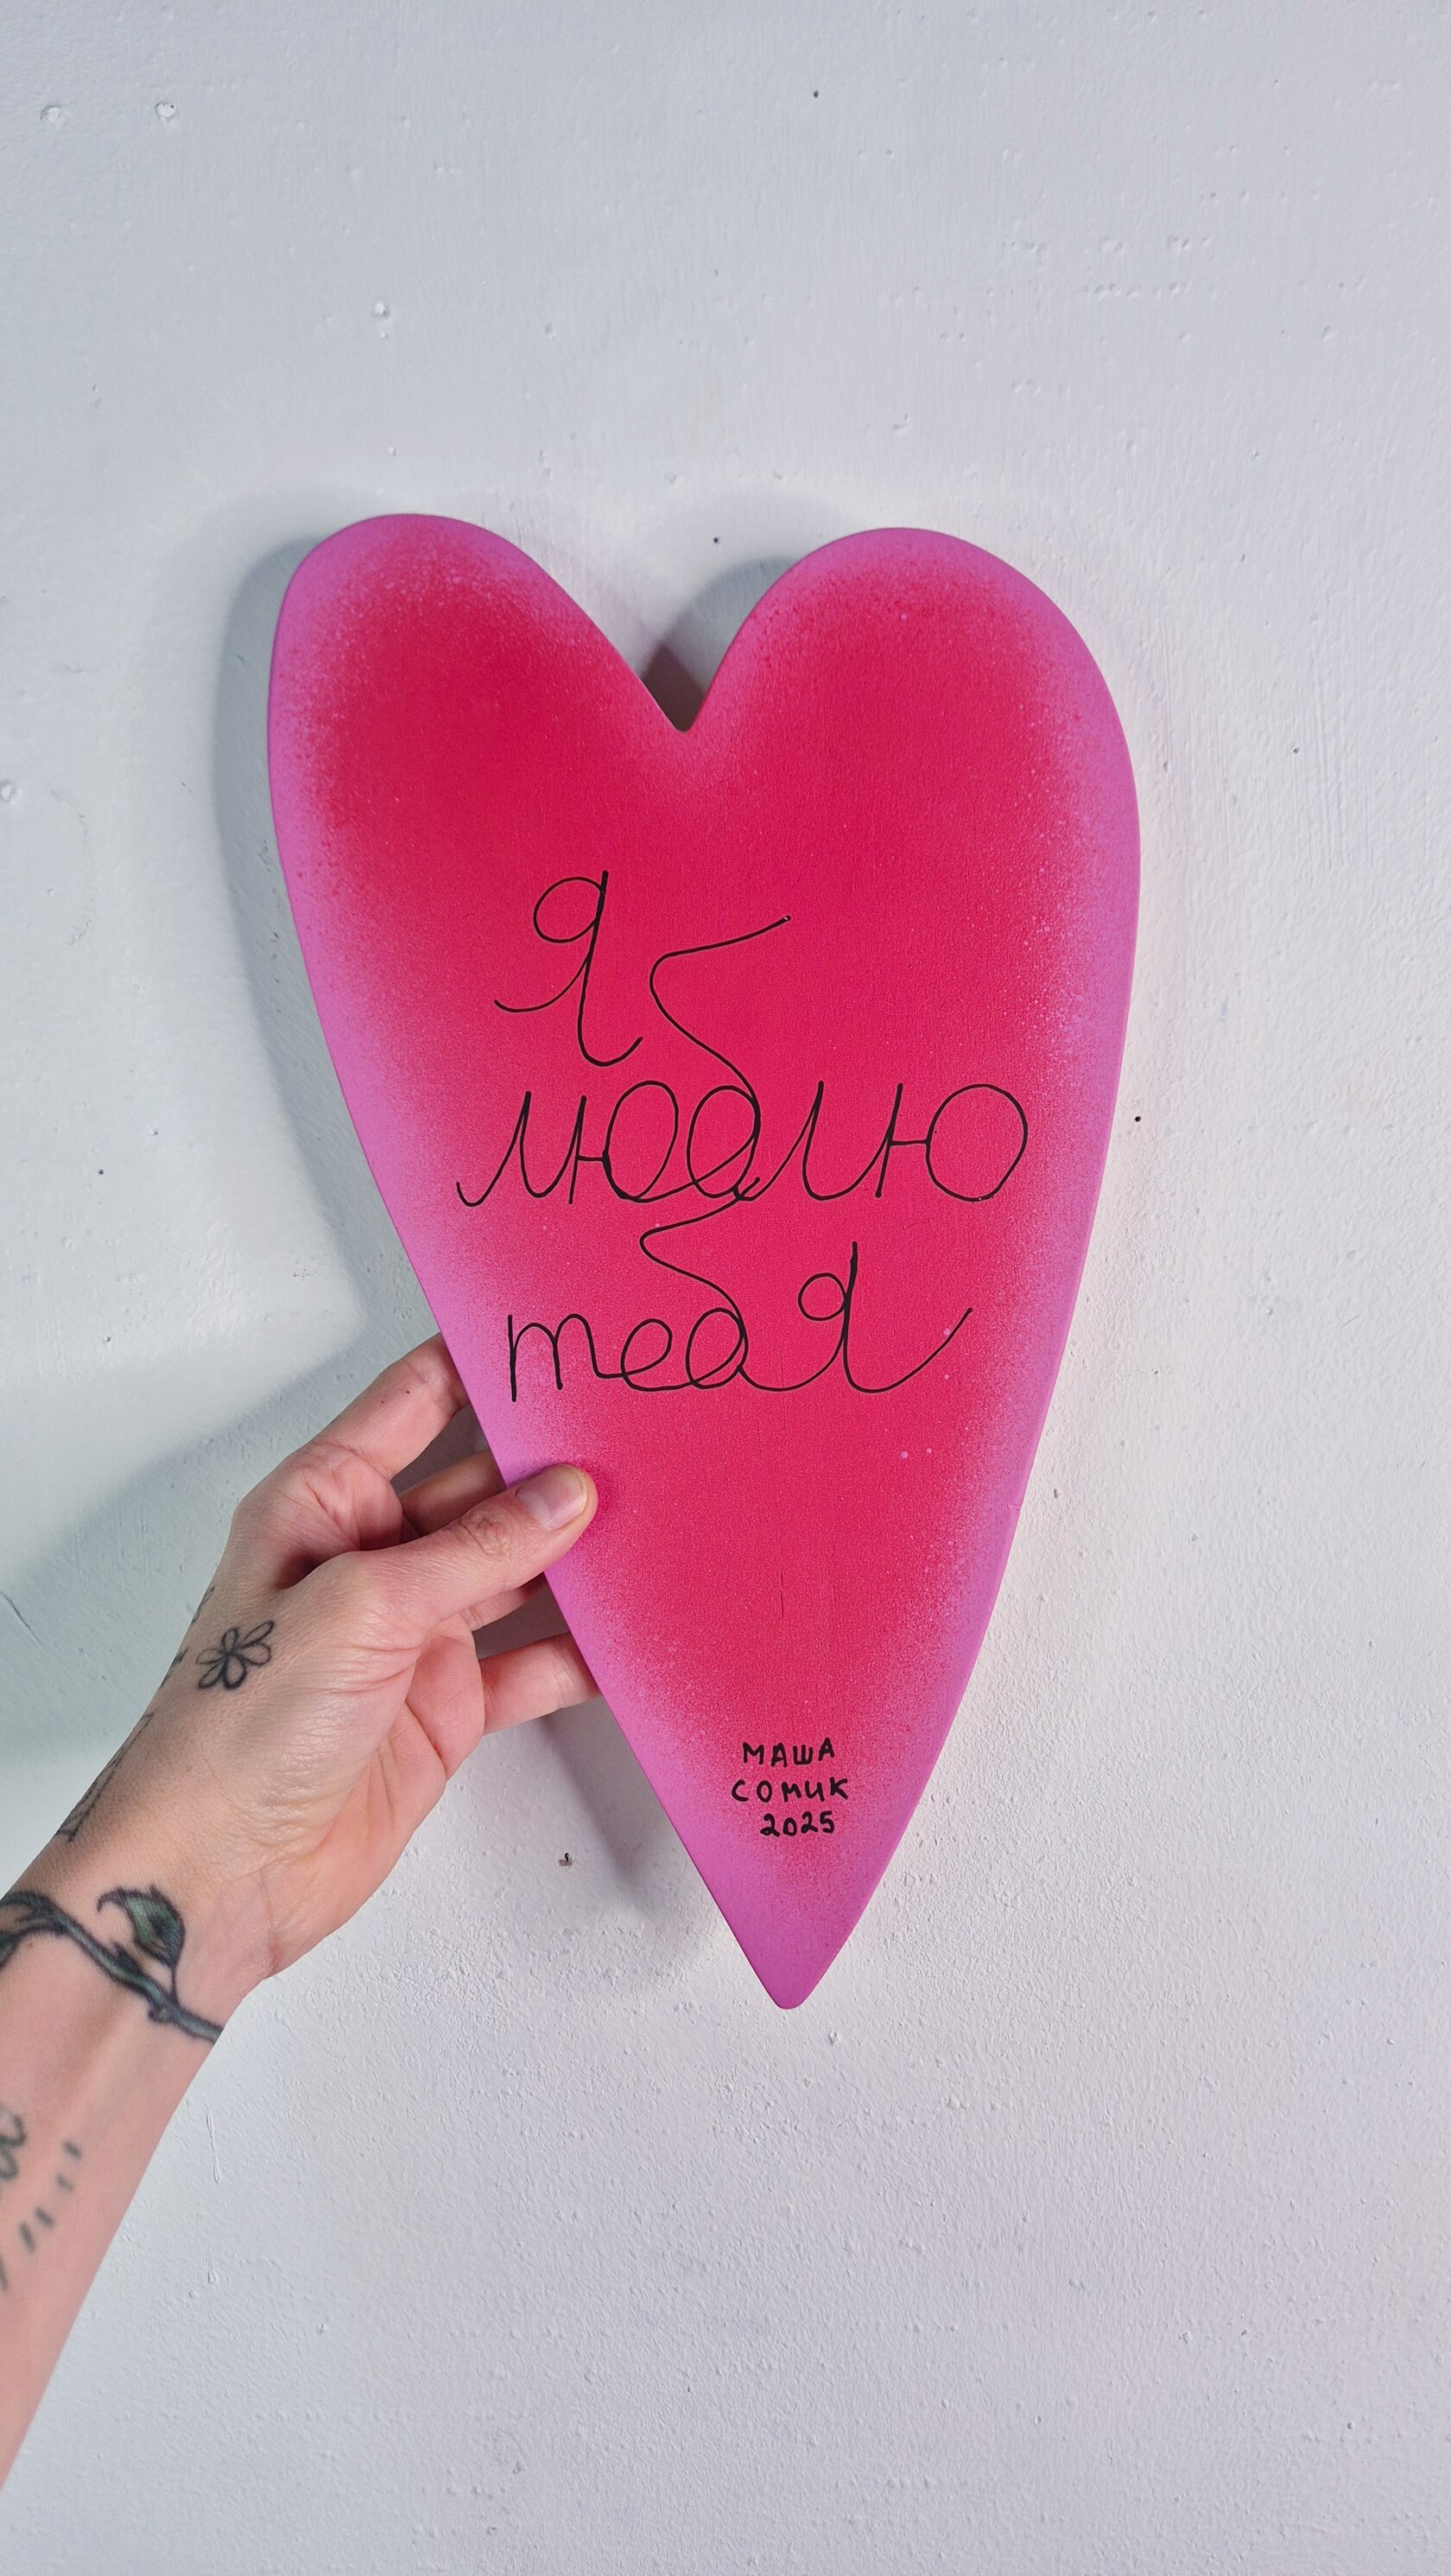 Я
люблю
тебя
МАША
СОМИК
2025